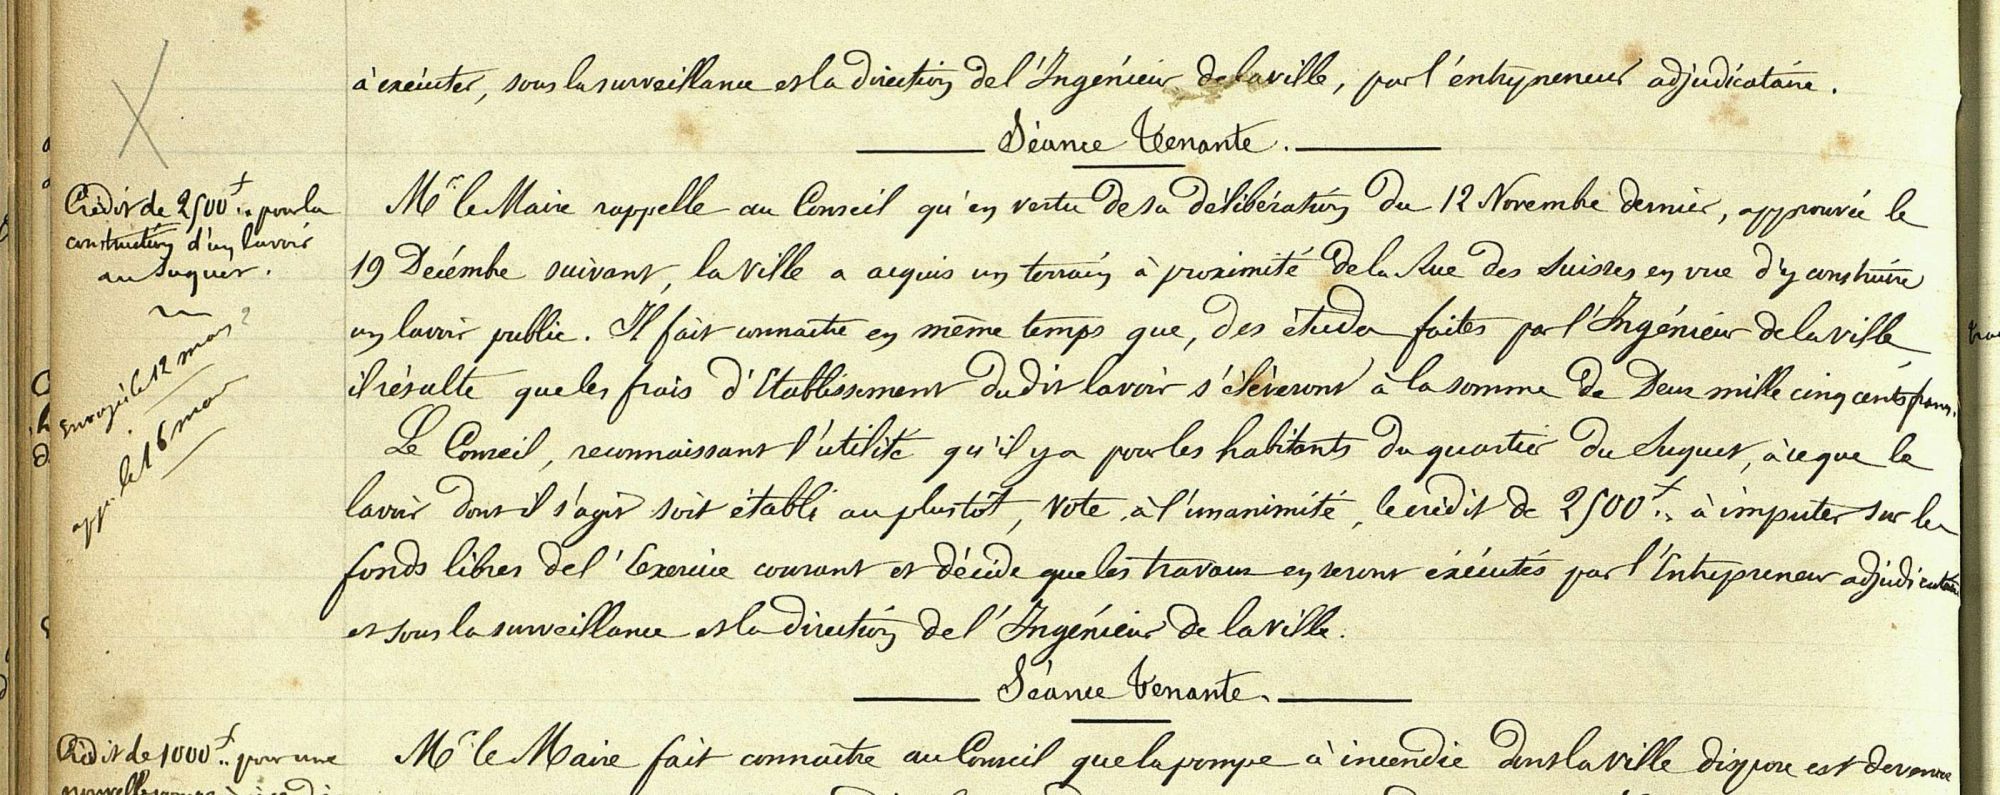 à exécuter, sous la surveillance et la direction de l'Ingénieur de la ville, par l'entrepreneur adjudicataire.
Séance Tenante.
Crédit de 2500f.. pour la
construction d'un lavoir
au Suquet.
Envoyé le 12 mars
app. le 16 mars
Mr le Maire rappelle au Conseil qu'en vertu de sa délibération du 12 Novembre dernier, approuvée le
19 Décembre suivant, la ville a acquis un terrain à proximité de la Rue des Suisses en vue d'y construire
un lavoir public. Il fait connaître en même temps que, des études faites par l'Ingénieur de la ville,
il résulte que les frais d'Etablissement dudit lavoir s'élèveront à la somme de Deux mille cinq cents francs.
Le Conseil, reconnaissant l'utilité qu'il y a pour les habitants du quartier du Suquet, à ce que le
lavoir dont il s'agit soit établi au plus tôt, vote, à l'unanimité, le crédit de 2500f.. à imputer sur les
fonds libres de l'Exercice courant et décide que les travaux en seront exécutés par l'Entrepreneur adjudicataire
et sous la surveillance et la direction de l'Ingénieur de la ville.
Séance Tenante.
Crédit de 1000f.. pour une
nouvelle pompe à incendie
Mr le Maire fait connaître au Conseil que la pompe à incendie dont la ville dispose est devenue